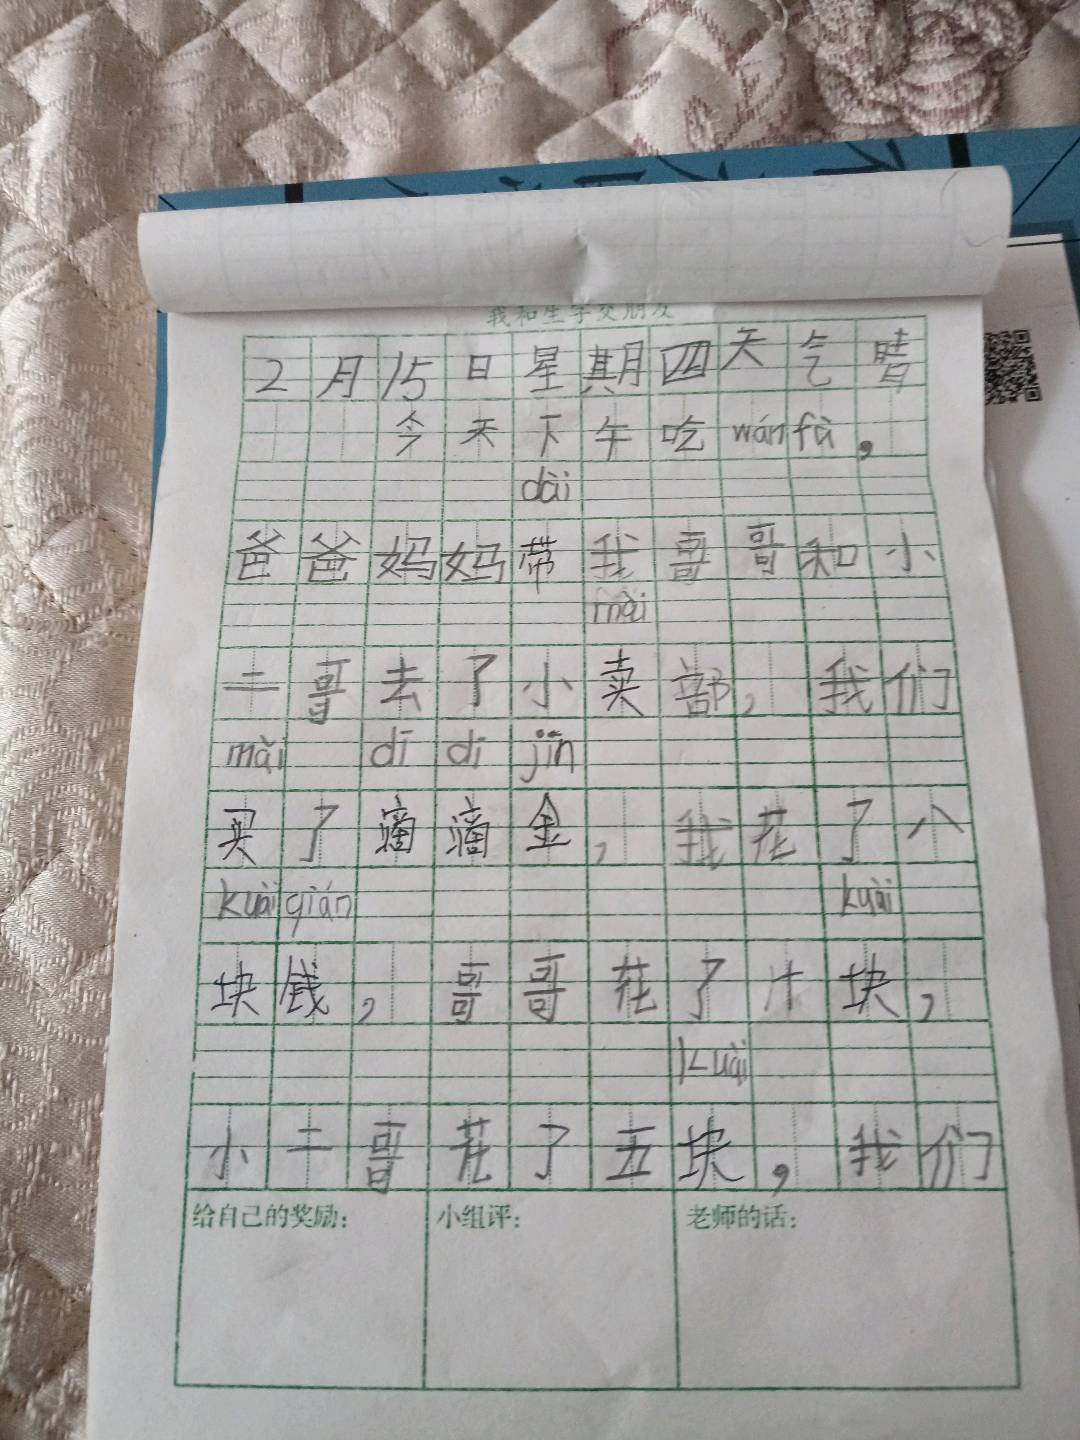 我和生字交朋友
2月15日星期四天气晴
今天下午吃wán fàn,
dài
爸爸妈妈带我哥哥和小
mài
二哥去了小卖部,我们
mǎi dī dī jīn
买了滴滴金,我花了八
kuài qián kuài
块钱,哥哥花了十块,
kuài
小二哥花了五块,我们
给自己的奖励:
小组评:
老师的话: